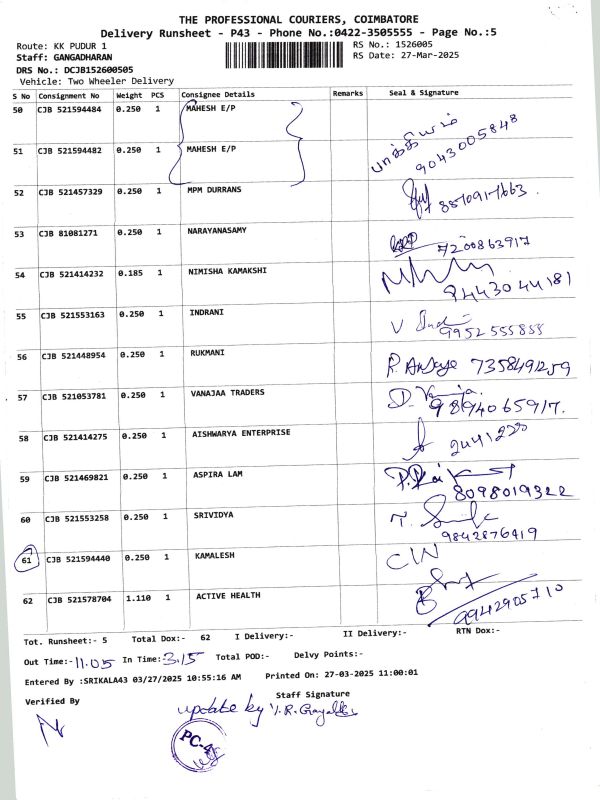 THE PROFESSIONAL COURIERS, COIMBATORE
Delivery Runsheet - P43 - Phone No.:0422-3505555 - Page No.:5
Route: KK PUDUR 1 RS No.: 1526005
Staff: GANGADHARAN RS Date: 27-Mar-2025
DRS No.: DCJB152600505
Vehicle: Two Wheeler Delivery
S No Consignment No Weight PCS Consignee Details Remarks Seal & Signature
50 CJB 521594484 0.250 1 MAHESH E/P பாக்கியம்
51 CJB 521594482 0.250 1 MAHESH E/P 9043005848
52 CJB 521457329 0.250 1 MPM DURRANS
53 CJB 81081271 0.250 1 NARAYANASAMY 7200863917
54 CJB 521414232 0.185 1 NIMISHA KAMAKSHI 9443044181
55 CJB 521553163 0.250 1 INDRANI V 9952555855
56 CJB 521448954 0.250 1 RUKMANI R. 7358491259
57 CJB 521053781 0.250 1 VANAJAA TRADERS D. Vanaja. 9894065917.
58 CJB 521414275 0.250 1 AISHWARYA ENTERPRISE 2441220
59 CJB 521469821 0.250 1 ASPIRA LAM 8098019322
60 CJB 521553258 0.250 1 SRIVIDYA T. 9842876419
61 CJB 521594440 0.250 1 KAMALESH CIN
62 CJB 521578704 1.110 1 ACTIVE HEALTH 9942905710
Tot. Runsheet:- 5 Total Dox:- 62 I Delivery:- II Delivery:- RTN Dox:-
Out Time:- 11.05 In Time:- 3.15 Total POD:- Delvy Points:-
Entered By :SRIKALA43 03/27/2025 10:55:16 AM Printed On: 27-03-2025 11:00:01
Verified By Staff Signature
update by
PC-4